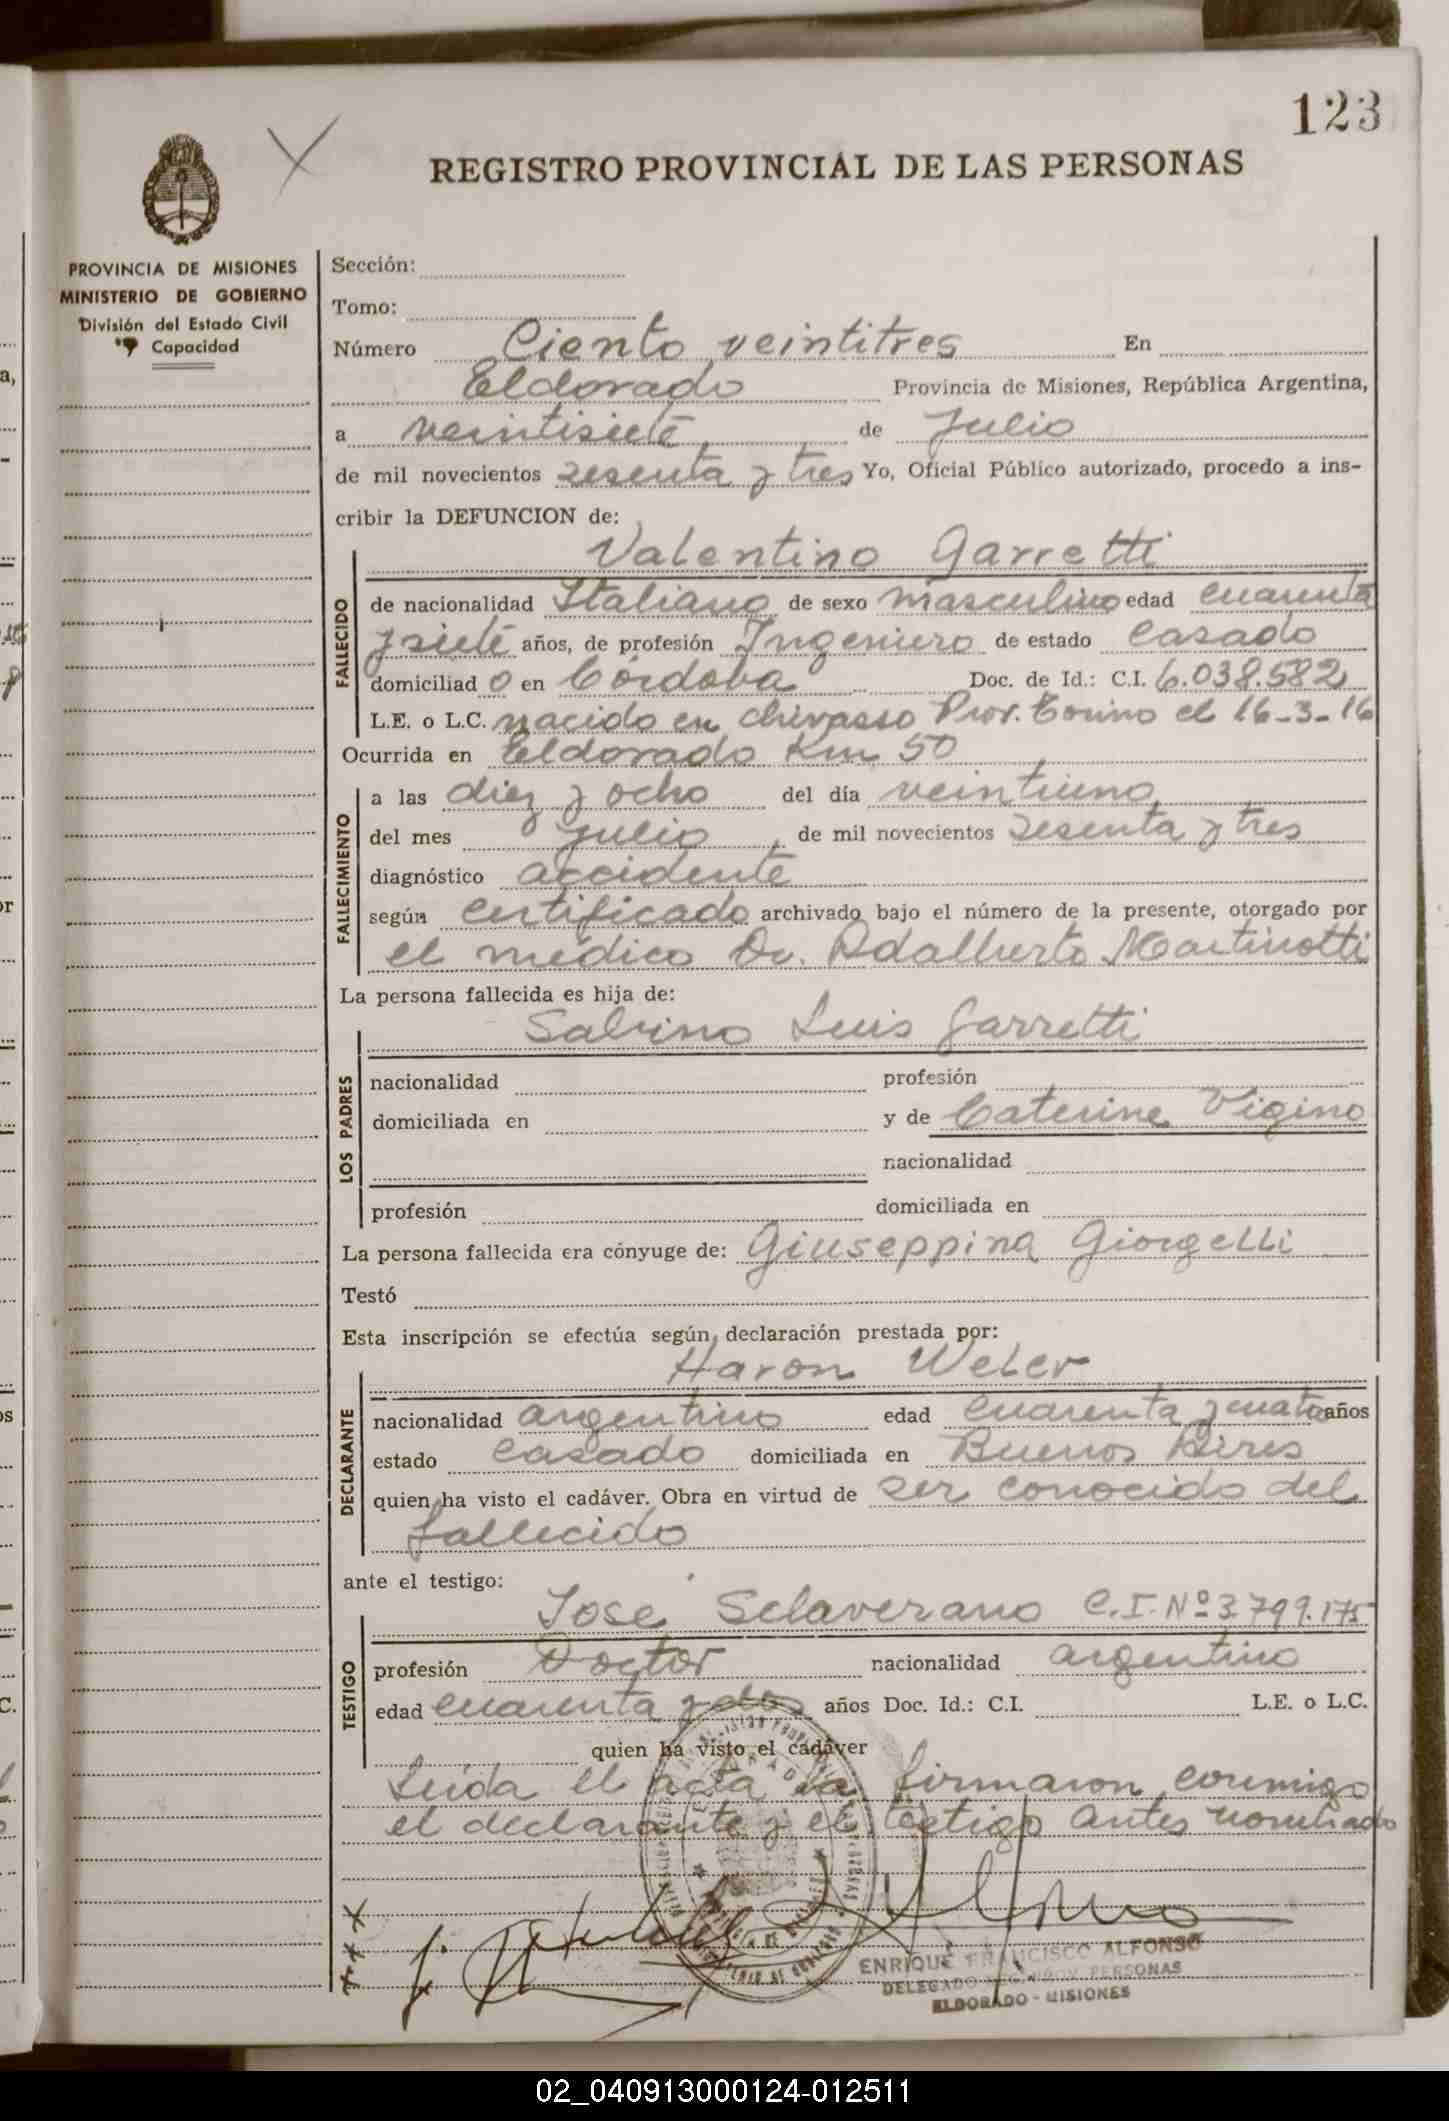 123
REGISTRO PROVINCIAL DE LAS PERSONAS
PROVINCIA DE MISIONES
MINISTERIO DE GOBIERNO
División del Estado Civil
y Capacidad
Sección:
Tomo:
Número Ciento veintitres En
Eldorado Provincia de Misiones, República Argentina,
a veintisiete de Julio
de mil novecientos sesenta y tres Yo, Oficial Público autorizado, procedo a ins-
cribir la DEFUNCION de:
Valentino Garretti
FALLECIDO
de nacionalidad Italiano de sexo masculino edad cuarenta
y siete años, de profesión Ingeniero de estado casado
domiciliad o en Córdoba Doc. de Id.: C.I. 6.038.582
L.E. o L.C. nacido en chivasso Prov. Torino el 16-3-16
Ocurrida en Eldorado Km 50
FALLECIMIENTO
a las diez y ocho del día veintiuno
del mes julio de mil novecientos sesenta y tres
diagnóstico accidente
según certificado archivado bajo el número de la presente, otorgado por
el médico Dr. Adalberto Martinotti
La persona fallecida es hija de:
Sabino Luis Garretti
LOS PADRES
nacionalidad profesión
domiciliada en y de Caterine Vigino
nacionalidad
profesión domiciliada en
La persona fallecida era cónyuge de: Giuseppina Giorgelli
Testó
Esta inscripción se efectúa según declaración prestada por:
Haron Weber
DECLARANTE
nacionalidad argentino edad cuarenta y cuatro años
estado casado domiciliada en Buenos Aires
quien ha visto el cadáver. Obra en virtud de ser conocido del
fallecido
ante el testigo:
José Sclaverano C.I. Nº 3.799.175
TESTIGO
profesión Doctor nacionalidad argentino
edad cuarenta y dos años Doc. Id.: C.I. L.E. o L.C.
quien ha visto el cadáver
Leída el acta la firmaron conmigo
el declarante y el testigo antes nombrado
ENRIQUE FRANCISCO ALFONSO
DELEGADO PERSONAS
ELDORADO - MISIONES
02_040913000124-012511